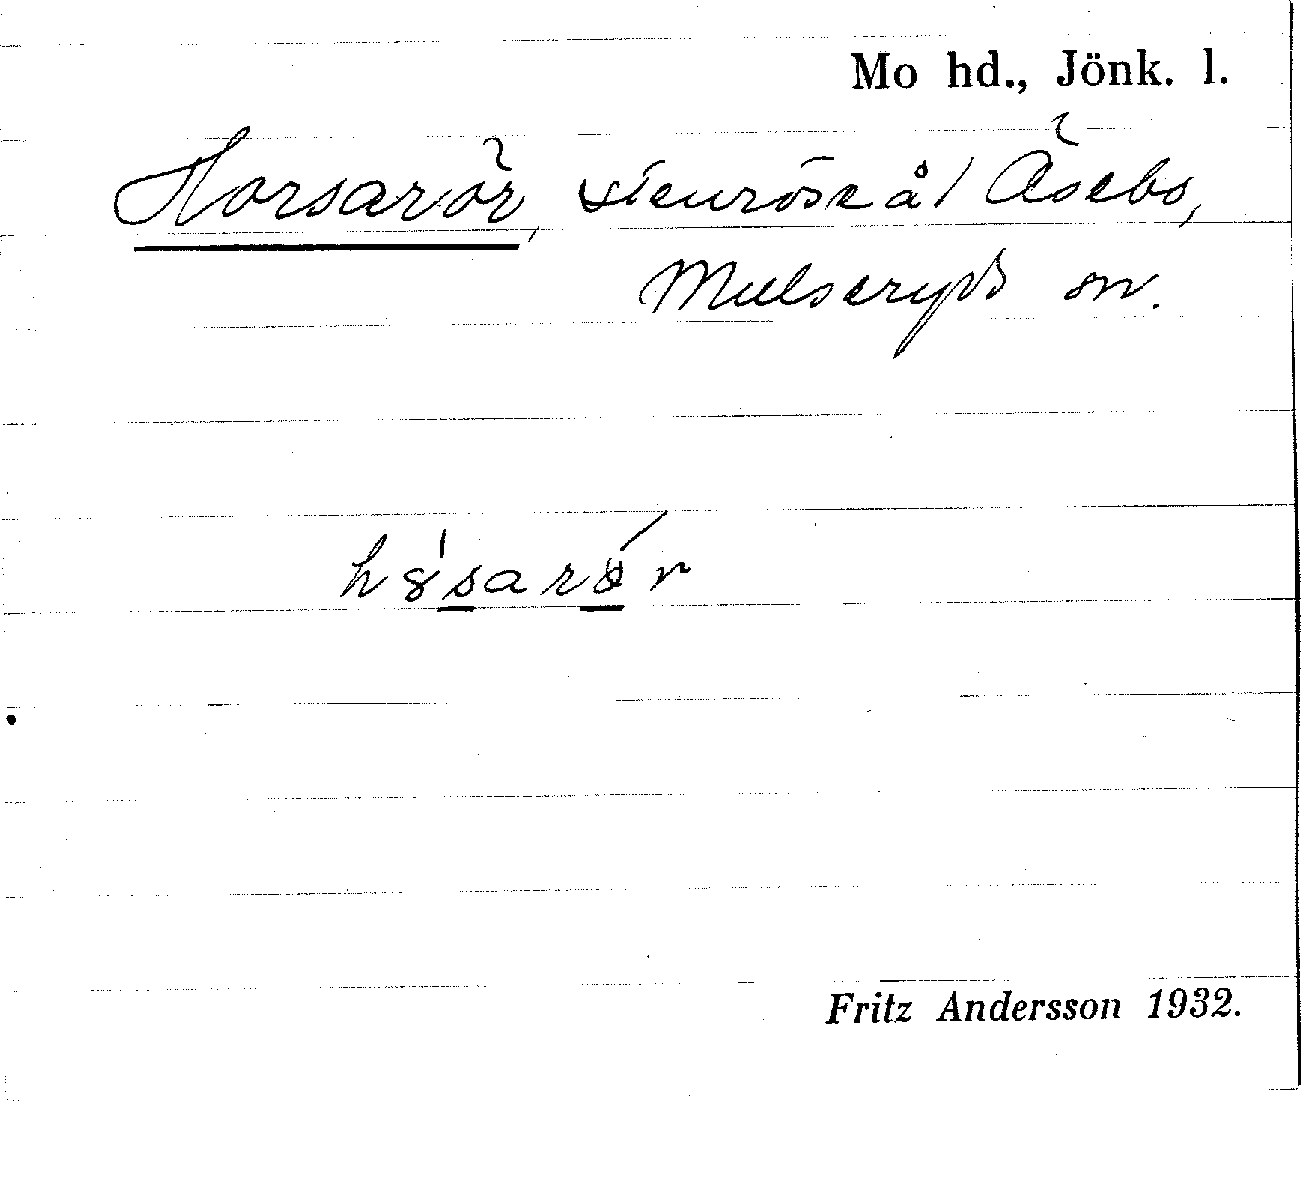 Mo hd., Jönk. l.
Horsarör, stenröse å Åsebo,
Mulseryds sn.
Fritz Andersson 1932.